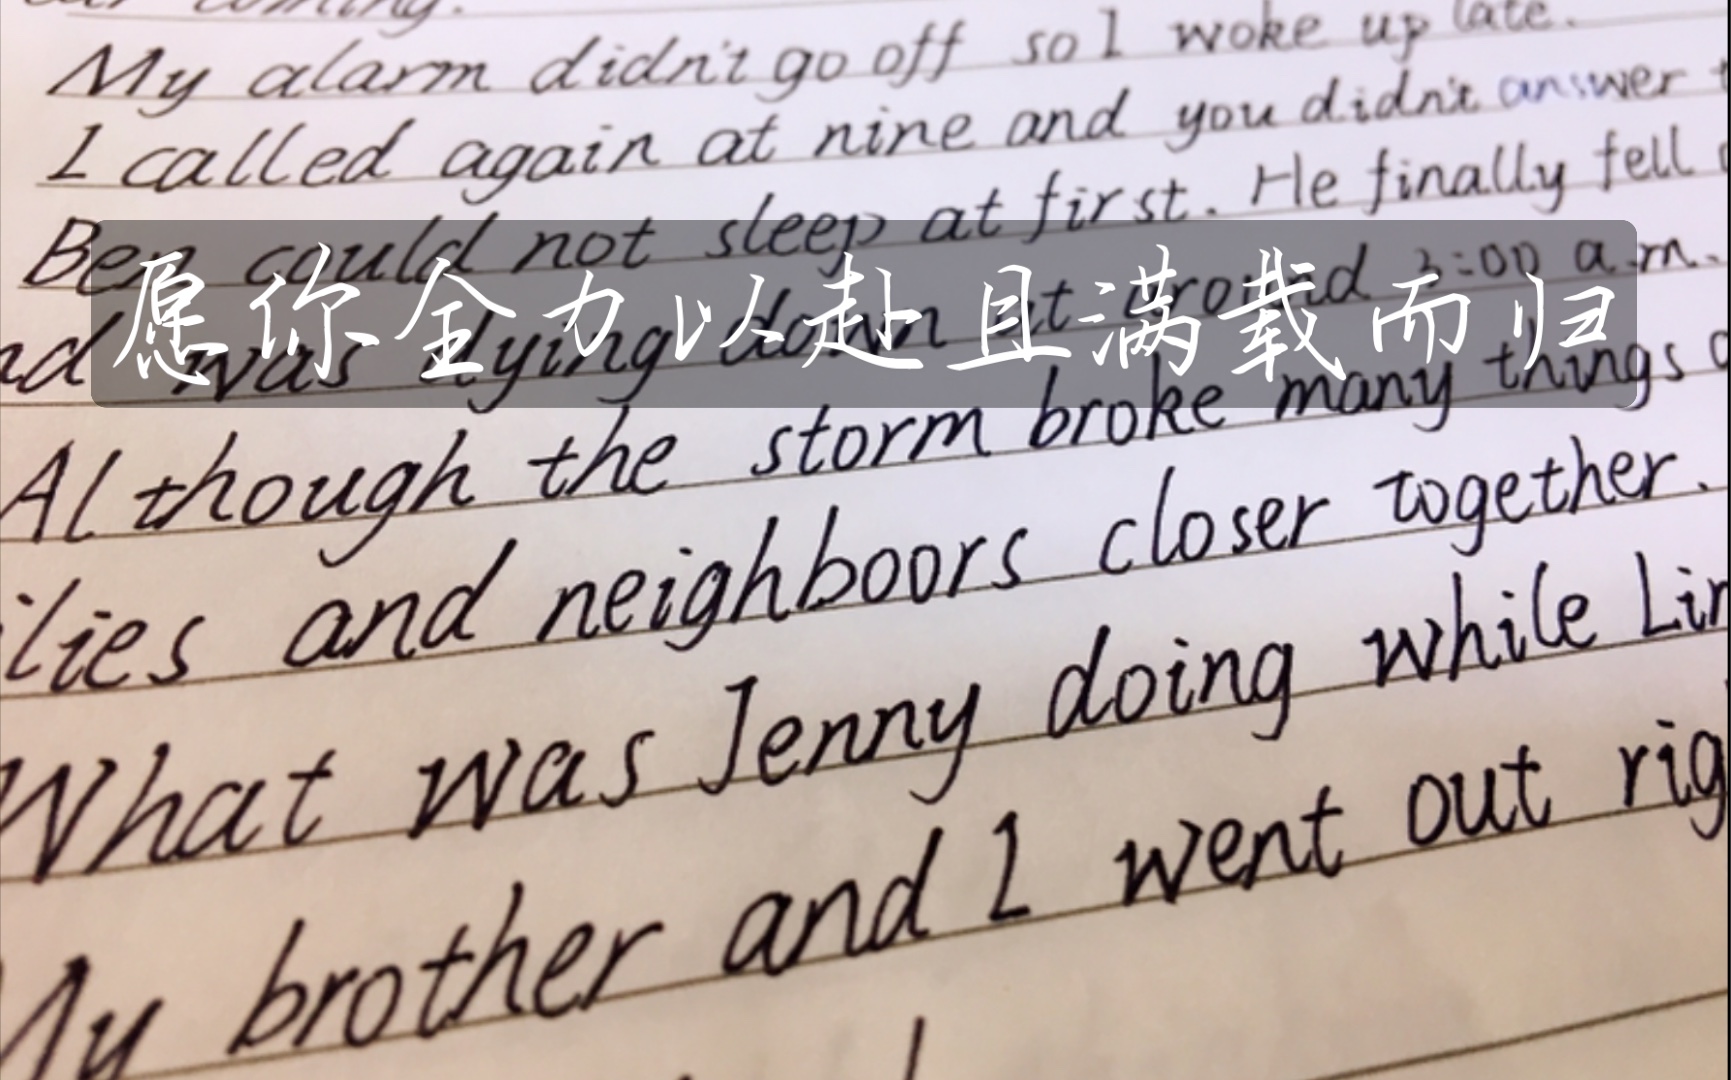 coming.
My alarm didn't go off so I woke up late.
I called again at nine and you didn't answer
Ben could not sleep at first. He finally fell
愿你全力以赴且满载而归
was lying down at around 3:00 a.m.
Although the storm broke many things
ilies and neighboors closer together.
What was Jenny doing while Lin
My brother and I went out rig